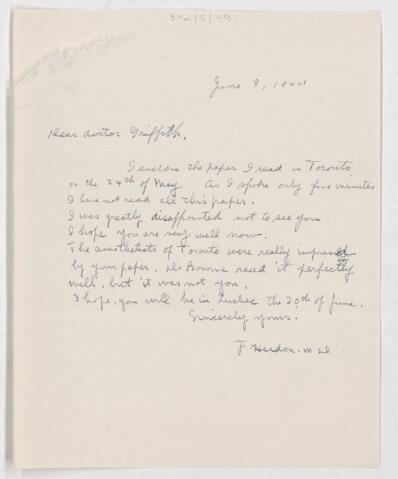 342/5/29
June 8, 1944
Dear doctor Griffith,
I enclose the paper I read in Toronto
on the 24th of May. As I spoke only five minutes
I have not read all this paper.
I was greatly disappointed not to see you.
I hope you are very well now.
The anesthetists of Toronto were really impressed
by your paper. Dr Bourne read it perfectly
well, but it was not you.
I hope, you will be in Quebec the 20th of June.
Sincerely yours.
F. Hudon. M D